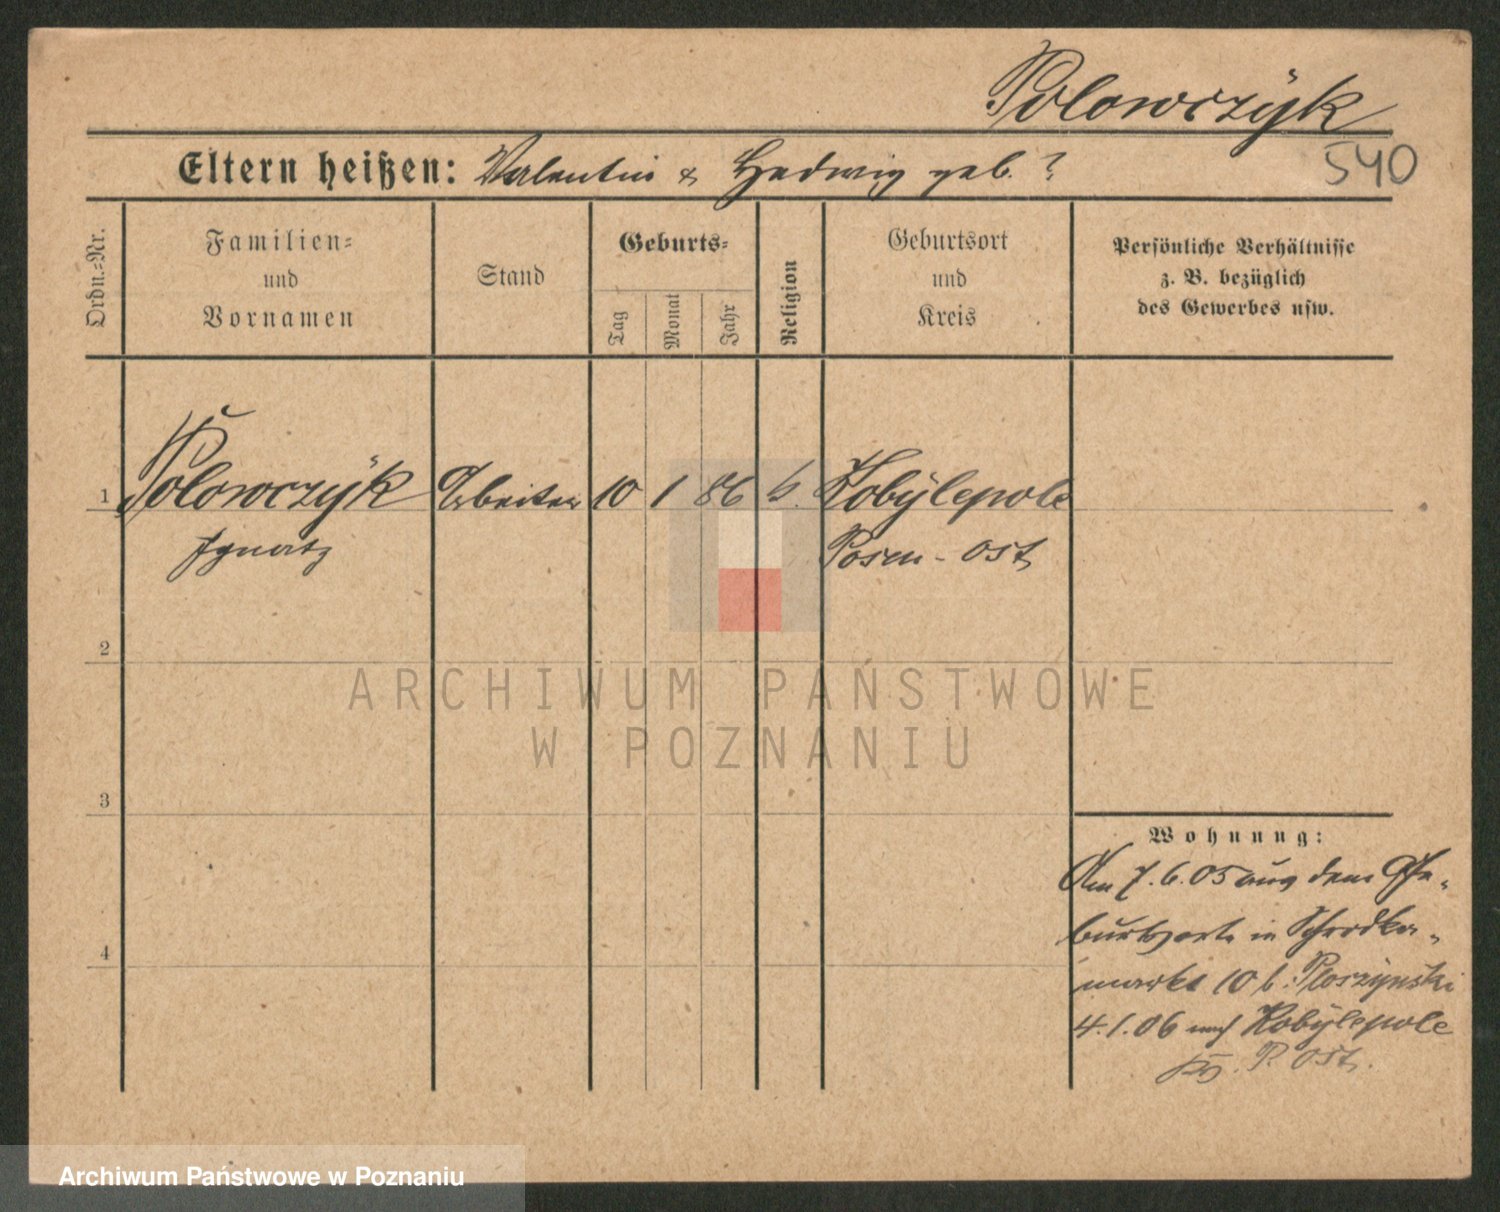 Polowczÿk
540
Eltern heißen: Valentin & Hedwig geb. ?
Ordn.=Nr.
Familien=
und
Vornamen
Stand
Geburts=
Tag
Monat
Jahr
Religion
Geburtsort
und
Kreis
Persönliche Verhältnisse
z. B. bezüglich
des Gewerbes usw.
1 Polowczÿk Arbeiter 10 1 86 k. Kobÿlepole
Ignatz Posen - Ost
2
3
4
Wohnung:
Am 7.6.05 aus dem Ge-
burtsorte in Schrodka-
markt 10 b. Ploszÿnski
4.1.06 nach Kobÿlepole
P. Ost.
ARCHIWUM PAŃSTWOWE
W POZNANIU
Archiwum Państwowe w Poznaniu